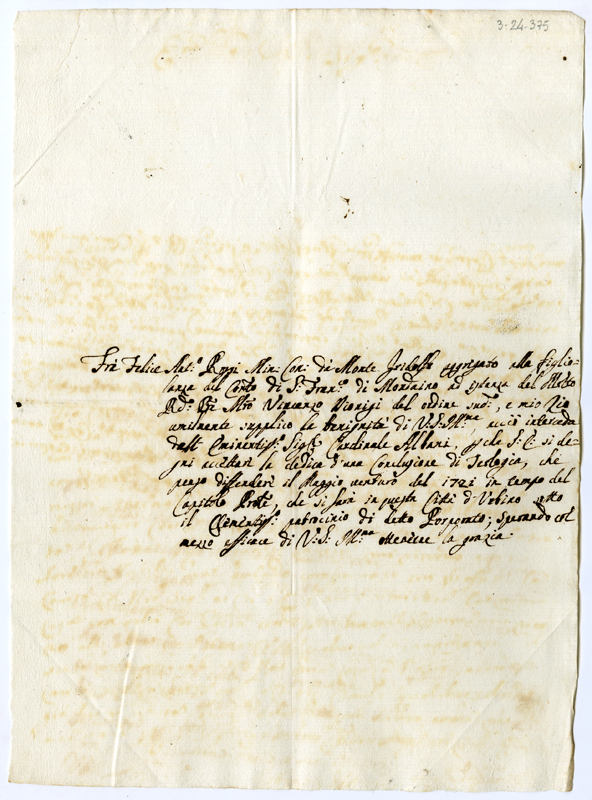 3-24-375
Frà Felice Ant.º Rossi Min: Con: da Monte Gridolfo aggregato alla figlio-
lanza del Conto di S. Fran.º di Mondaino ad istanza del Molto
Rdo: Pre Mro Vincenzo Dionigi del ordine sud.º, e mio Zio
umilmente supplico la benignità di V:S: Ill.ma acciò interceda
dall' Eminentiss: Sig.r Cardinale Albani, che S: E: si de-
gni accettare la dedica d'una Conclusione di Teologia, che
penso diffendere il Maggio venturo del 1721 in tempo del
Capitolo, che si farà in questa Città d'Urbino sotto
il Clementiss: patrocinio di detto Porporato; Sperando col
mezzo efficace di V:S: Ill.ma ottenere la grazia.